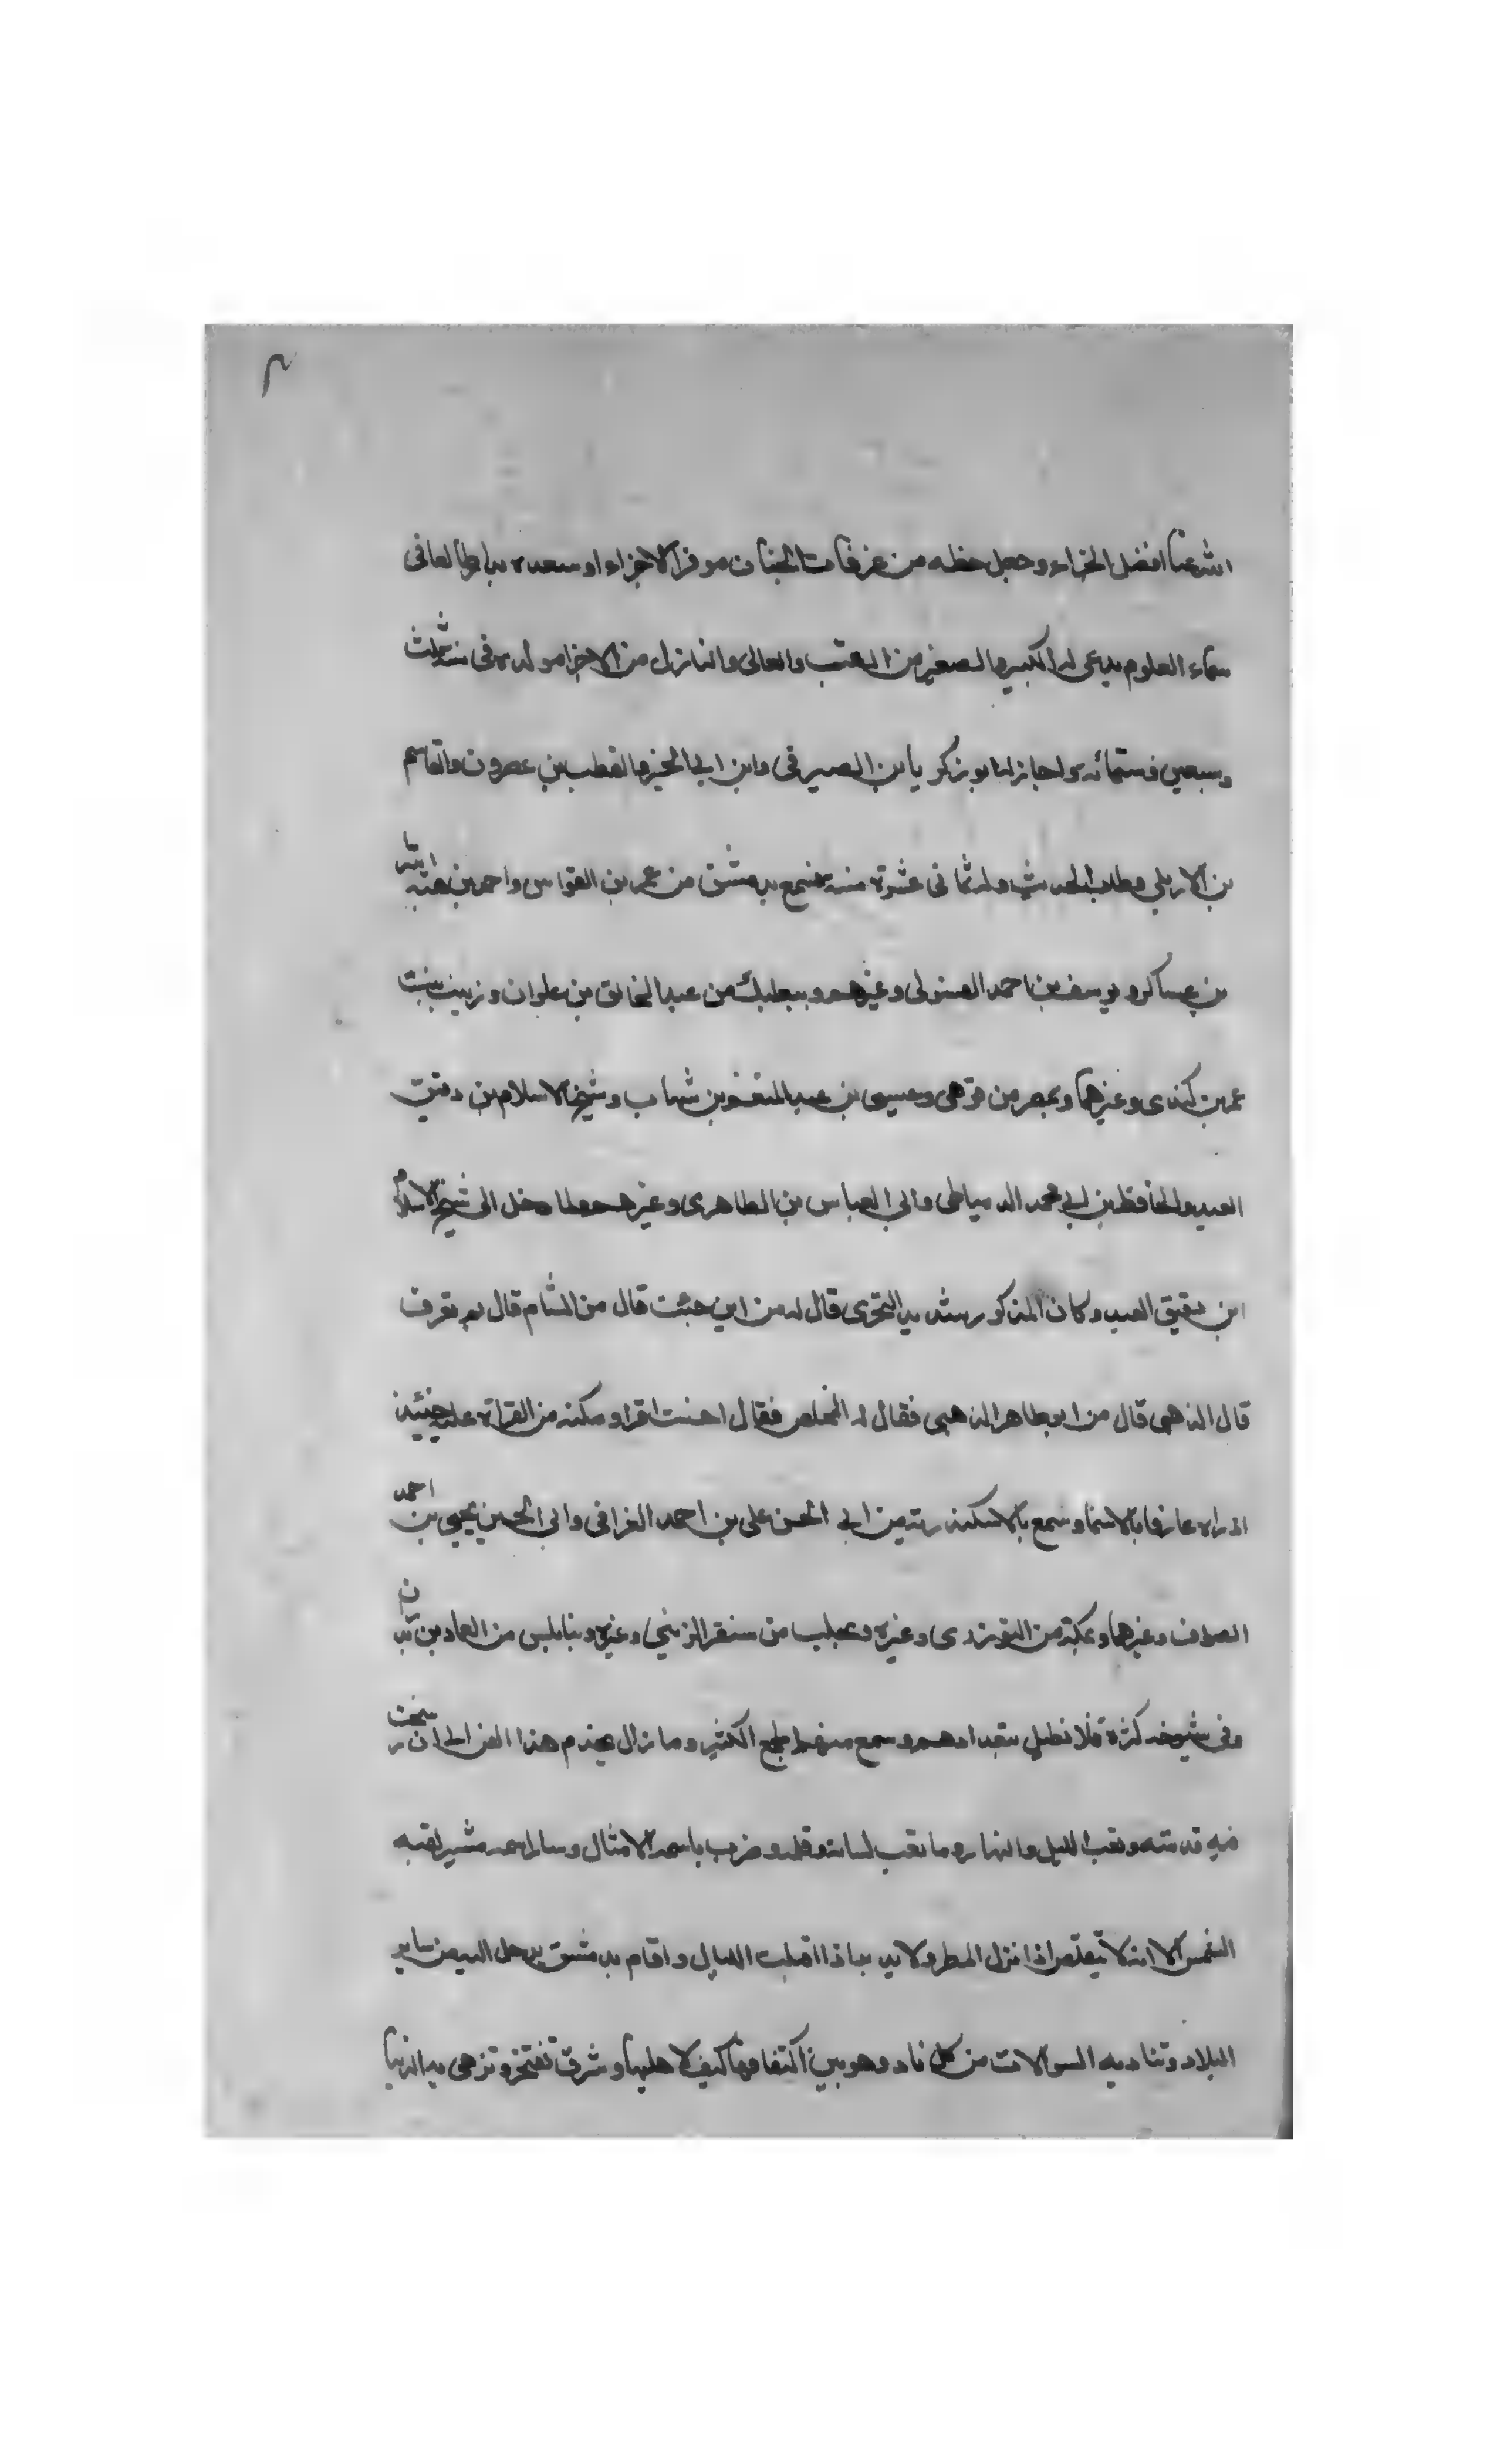 الله عنا افضل الجزاء وجعل حظه من غرفات الجنان موفر الاجزاء وسعده بدرا طالعا فى
سماء العلوم يدعى له الكبير والصغير من الكتب والعالى والنازل من الاجزا مولده فى سنة ثلث
وسبعين وستمائه واجاز له ابو زكريا بن الصيرفى وابن ابى الخير والقطب بن عصرون والقاسم
بن الاربلي وطلب الحديث وله ثمانى عشرة سنه فسمع بدمشق من عمر بن القواس واحمد بن هبة الله
بن عساكر ويوسف بن احمد الغسولى وغيرهم وببعلبك من عبد الخالق بن علوان وزينب بنت
عمر بن كندى وغيرهما وبمصر من الابرقوهى وعيسى بن عبد المنعم بن شهاب وشيخ الاسلام بن دقيق
العيد والحافظ بن ابى محمد الدمياطى وابى العباس بن الظاهرى وغيرهم ولما دخل الى شيخ الاسلام
ابن دقيق العيد وكان المذكور شديد التحرى قال له من اين جئت قال من الشام قال بم تعرف
قال الذهبى قال من ابو طاهر الذهبى فقال له المخلص فقال احسنت اقرا ومكنه من القراة عليه حينئذ
اذ راه عارفا بالاسما وسمع بالاسكندرية من ابى الحسن على بن احمد الغرافى وابى الحسين يحيى بن احمد
الصواف وغيرهما وبمكة من التوزرى وغيره وبحلب من سنقر الزينى وغيره وبنابلس من العماد بن بدران
وفى شيوخه كثرة فلا نطيل بتعدادهم وسمع منه الجمع الكثير وما زال يخدم هذا الفن الى ان رسخت
فيه قدمه وتعب الليل والنهار وما تعب لسانه وقلمه وضرب باسمه الامثال وسار اسمه مسير لقبه
الشمس الا انه لا يتقلص اذا نزل المطر ولا يدبر اذا اقبلت الليالى واقام بدمشق يرحل اليه من ساير
البلاد وتناديه السوالات من كل ناد وهو بين اكنافها كنف لاهليها وشرف تفتخر وتزهى به الدنيا